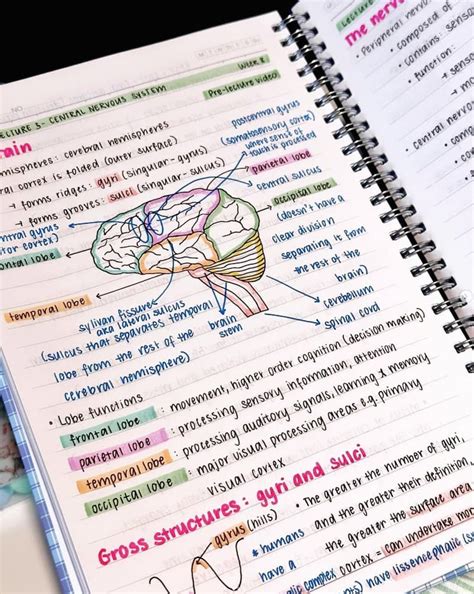 NO
LECTURE 3- CENTRAL NERVOUS SYSTEM
WEEK
Pre-lecture video!
rain
hemispheres: cerebral hemispheres
cortex is folded (outer surface)
→ forms ridges: gyri (singular-gyrus)
→ forms grooves: sulci (singular-sulcus)
postcentral gyrus
(somatosensory cortex)
where sense of
touch is processed
parietal lobe
central sulcus
occipital lobe
(doesn't have a
clear division
separating it from
the rest of the
brain)
cerebellum
spinal cord
brain
stem
gyrus
cortex)
frontal lobe
temporal lobe
sylvian fissures
aka lateral sulcus
(sulcus that separates temporal
lobe from the rest of the
cerebral hemisphere)
• Lobe functions
frontal lobe : movement, higher order cognition (decision making)
parietal lobe : processing sensory information, attention
temporal lobe : processing auditory signals, learning & memory
occipital lobe : major visual processing areas e.g. primary
visual cortex
Gross structures: gyri and sulci
gyrus (hills)
• The greater the number of gyri,
and the greater their definition,
the greater the surface area
cortex = can undertake more
* humans
have a
complex
have lissencephalic
Lecture
The nervo
• Peripheral nervou
• composed of
• contains: sensor
• function:
→ sens
→ m
• central nervo
• com